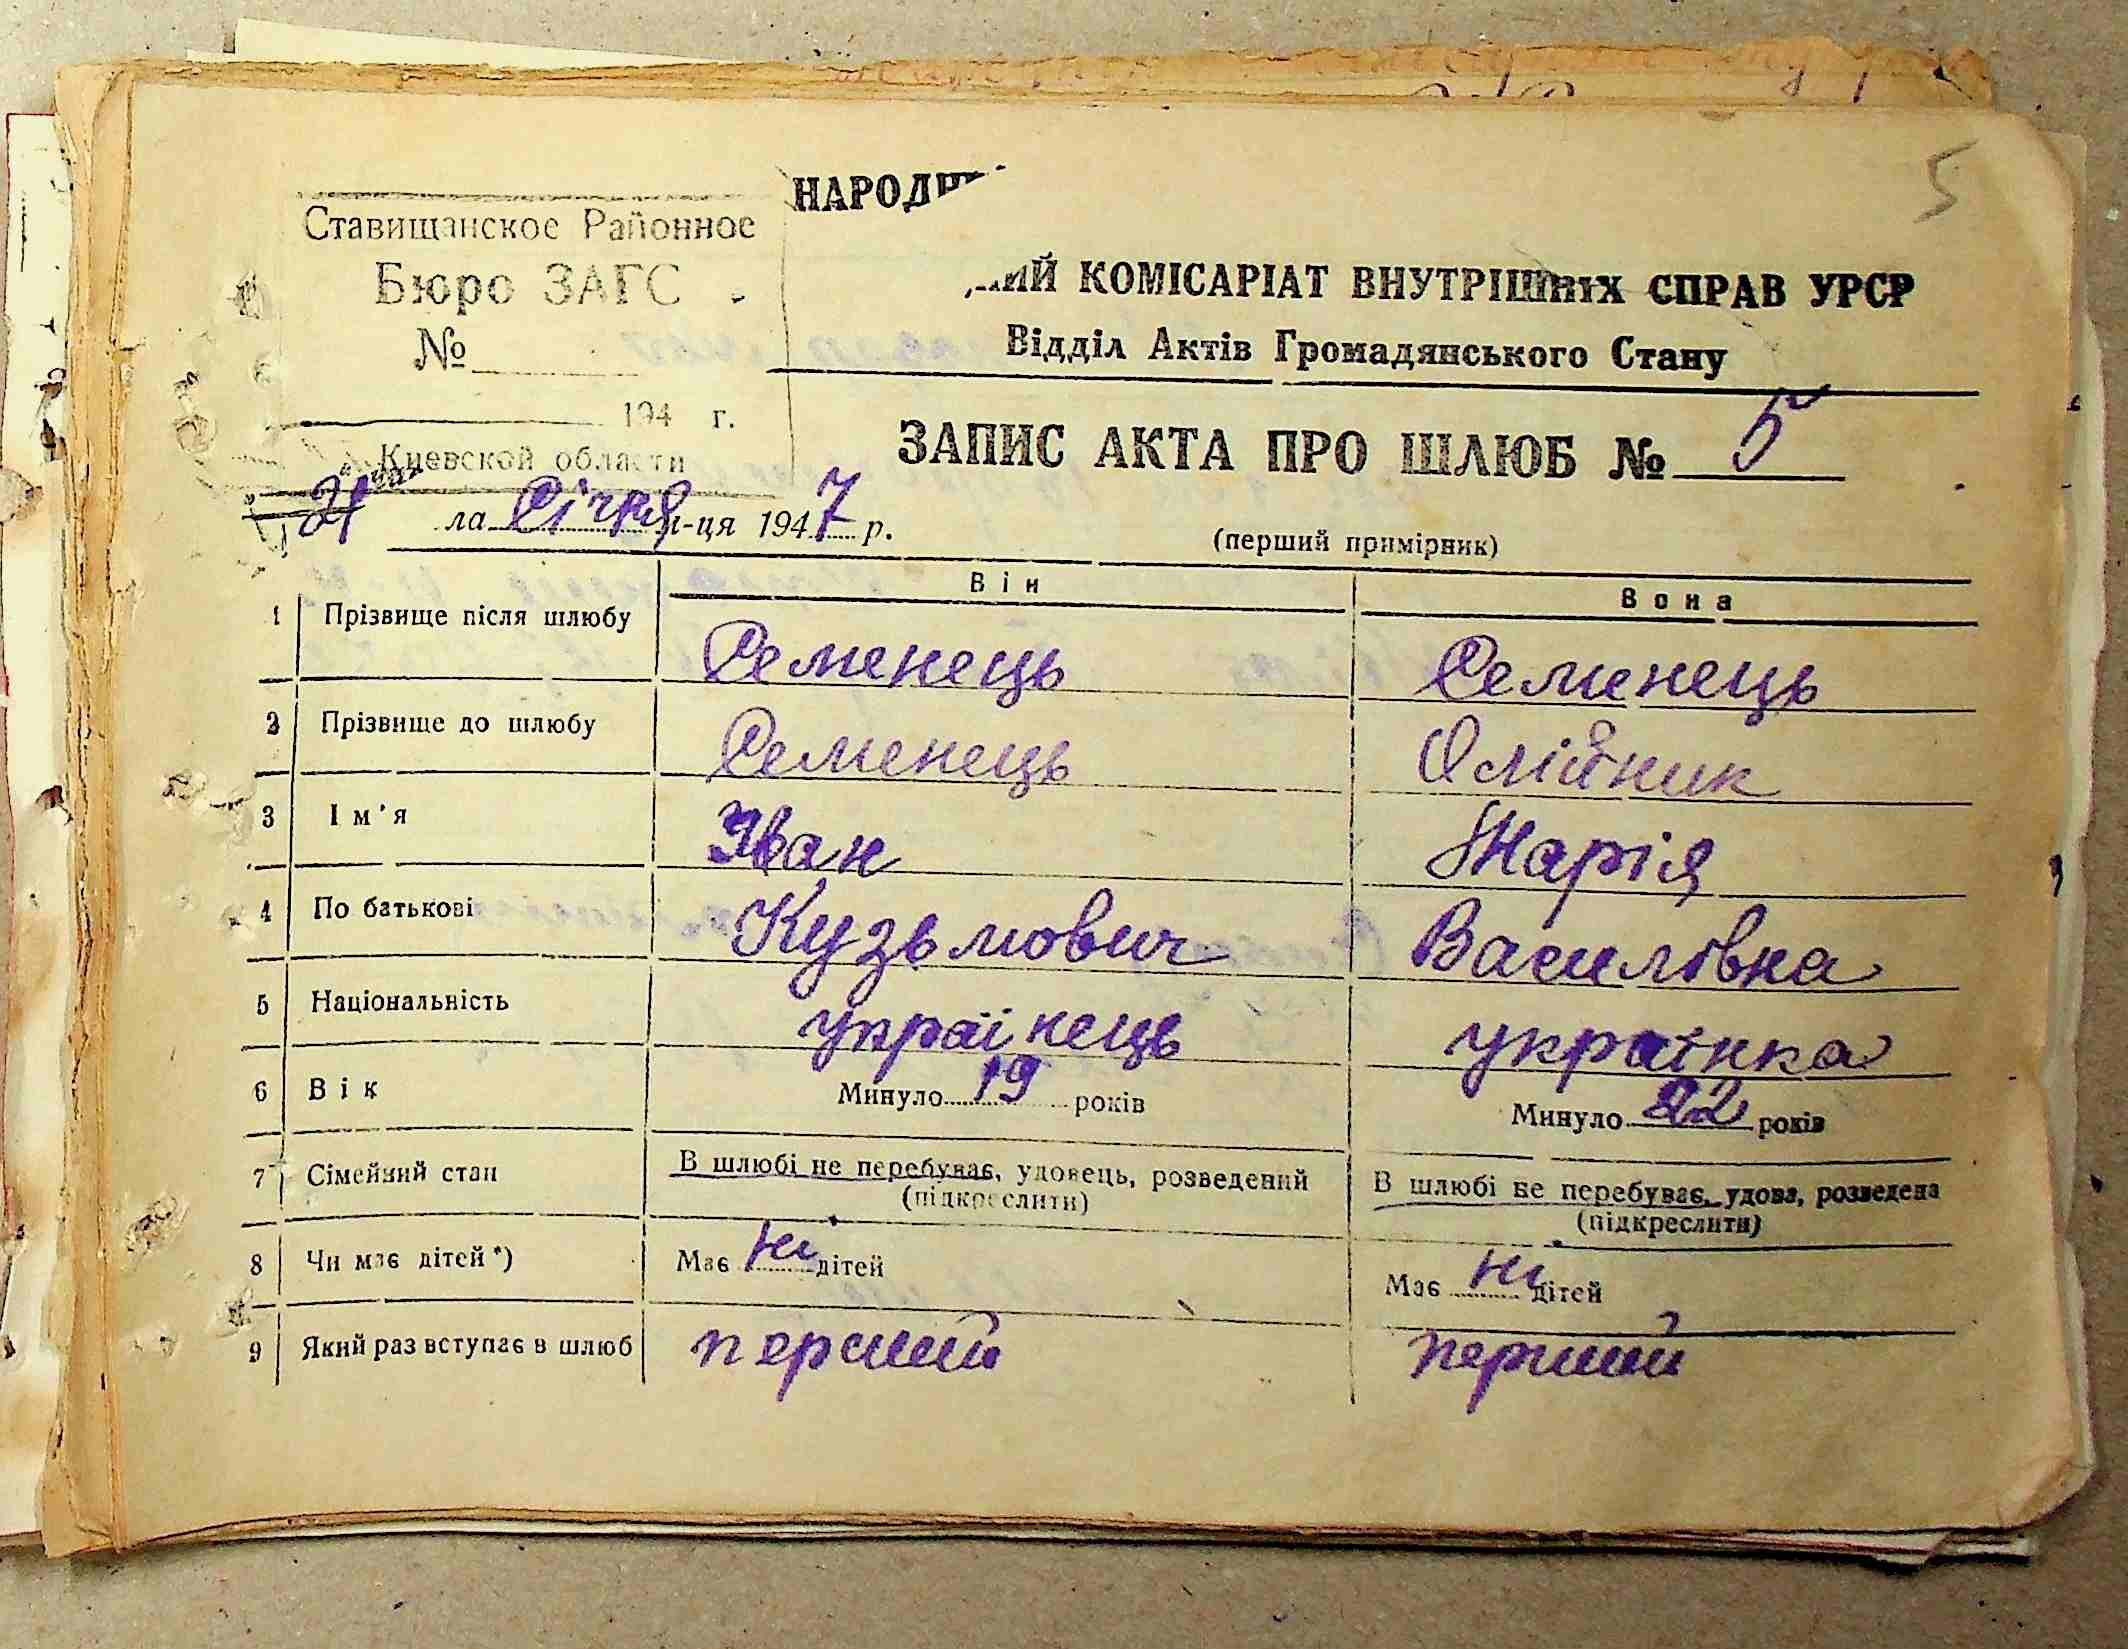 5
НАРОДН
Ставищанское Районное
Бюро ЗАГС
ИЙ КОМІСАРІАТ ВНУТРІШНІХ СПРАВ УРСР
№
Відділ Актів Громадянського Стану
194 г.
Киевской области
ЗАПИС АКТА ПРО ШЛЮБ № 5
21 ла Січня м-ця 1947 р.
(перший примірник)
Він Вона
1 Прізвище після шлюбу Семенець Семенець
2 Прізвище до шлюбу Семенець Олійник
3 Ім'я Іван Марія
4 По батькові Кузьмович Василівна
5 Національність українець українка
6 Вік Минуло 19 років Минуло 22 років
7 Сімейний стан В шлюбі не перебуває, удовець, розведений В шлюбі не перебуває, удова, розведена
(підкреслити) (підкреслити)
8 Чи має дітей*) Має ні дітей Має ні дітей
9 Який раз вступає в шлюб перший перший